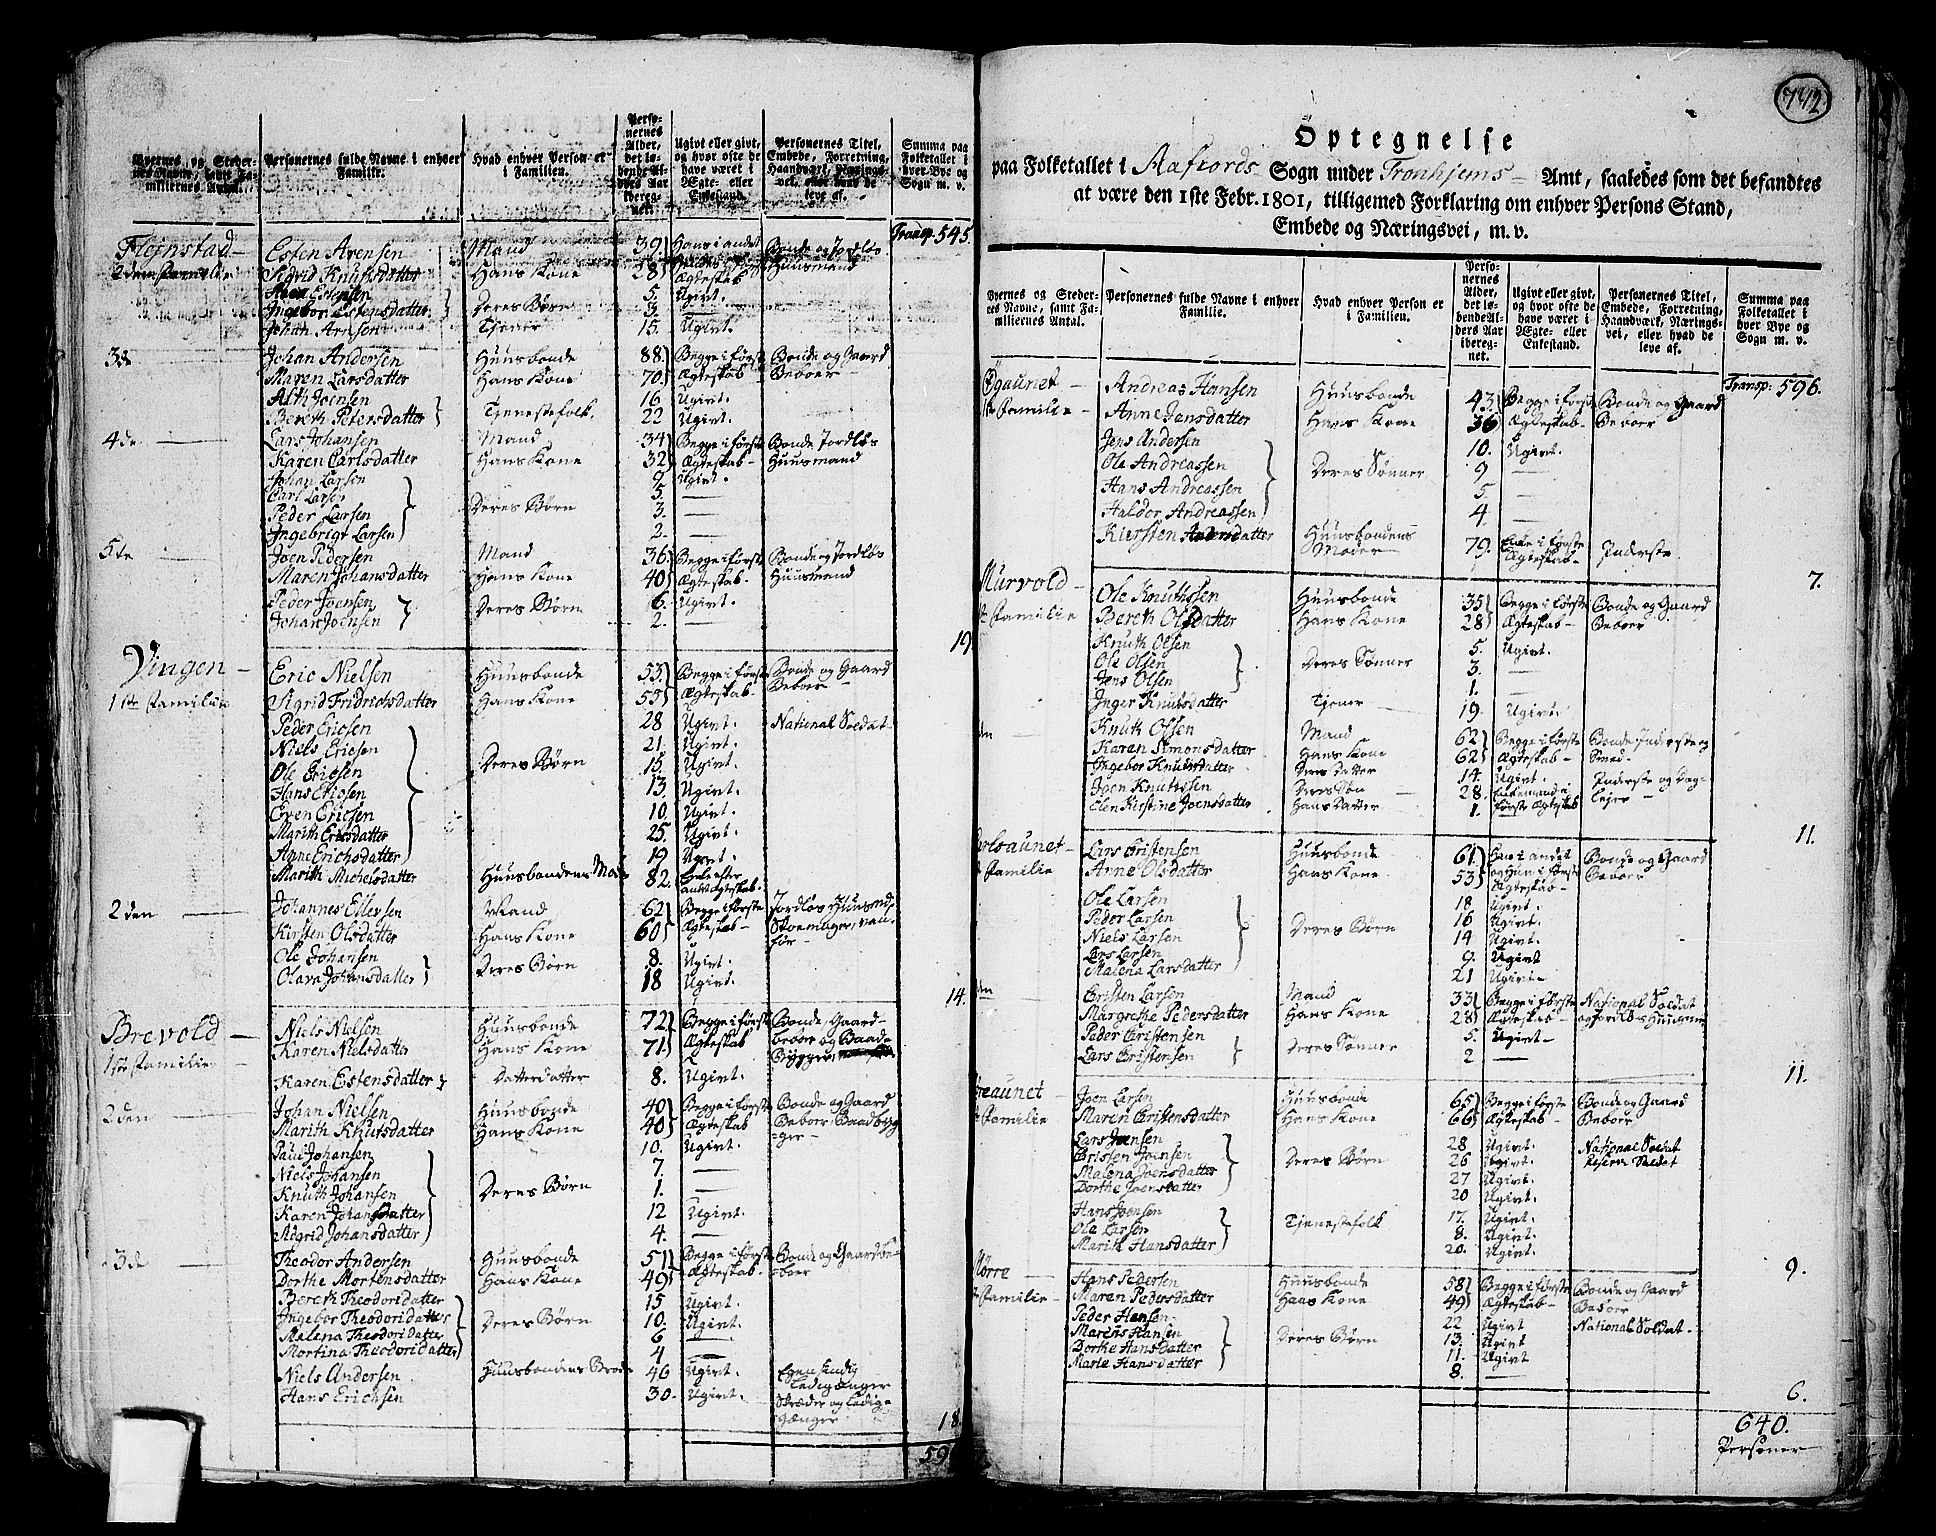 Byernes og Steder-
nes Navne, samt Fa-
miliernes Antal.
Personernes fulde Navne i enhver
Familie.
Hvad enhver Person er
i Familien.
Perso-
nernes
Alder,
det lø-
bende Al-
ders Aar
iberegnet.
Ugivt eller givt,
og hvor ofte de
have været i
Ægte- eller
Enkestand.
Personernes Titel,
Embede, Forretning,
Haandværk, Nærings-
vei, eller hvad de
leve af.
Summa paa
Folketallet i
hver Bye og
Sogn m. v.
Transp. 545.
Flejnstad Esten Arensen Mand 39 Hans i andet Bonde og Jordløs
2den Familie Sigrid Knutsdatter Hans Kone 28 Ægteskab Huusmand
Estensen 5. Ugivt.
Ingebor Estensdatter Deres Børn 3. —
Johan Arnsen Tjener 15. Ugivt.
3de Johan Andersen Huusbonde 88 Begge i første Bonde og Gaard
Maren Larsdatter Hans Kone 70 Ægteskab Beboer
Joensen 16 Ugivt.
Bereth Petersdatter Tjenestefolk. 22 Ugivt.
4de Lars Johansen Mand 34 Begge i første Bonde Jordløs
Karen Carlsdatter Hans Kone 32 Ægteskab Huusmand
Johan Larsen 9 Ugivt.
Carl Larsen 5. —
Peder Larsen Deres Børn 3. —
Ingebrigt Larsen 2. —
5te Joen Pedersen Mand 36. Begge i første Bonde og Jordløs
Maren Johansdatter Hans Kone 40 Ægteskab Huusmand
Peder Joensen Deres Børn 6. Ugivt.
Johan Joensen 2. —
19
Vingen Eric Nielsen Huusbonde 53. Begge i første Bonde og Gaard
1ste Familie Sigrid Fridrichsdatter Hans Kone 59 Ægteskab Beboer
Peder Ericsen 28 Ugivt. National Soldat
Niels Ericsen 21. Ugivt.
Ole Ericsen Deres Børn 15. Ugivt.
Hans Ericsen 13 Ugivt.
Even Ericsen 10. Ugivt.
Marith Ericsdatter 25. Ugivt.
Anne Erichsdatter 19 Ugivt.
Marith Michelsdatter Huusbondens Moder 82. Enke efter
2den Johannes Ellevsen Mand 62 Begge i første Jordløs Huusmd.
Kirsten Olsdatter Hans Kone 60 Ægteskab Skoemager, van-
før
Ole Johansen 8. Ugivt.
Olava Johansdatter Deres Børn 18 Ugivt.
14.
Brevold Niels Nielsen Huusbonde 72 Begge i første Bonde, Gaard-
1ste Familie Karen Nielsdatter Hans Kone 71 Ægteskab beboer og Baad-
Bygger
Karen Estensdatter Datterdatter 8. Ugivt.
2den Johan Nielsen Huusbonde 40 Begge i første Bonde og Gaard
Marith Knutsdatter Hans Kone 40 Ægteskab Beboer Baadbyg-
ger
Paul Johansen 10. Ugivt.
Niels Johansen 7. —
Knuth Johansen Deres Børn 1. —
Karen Johansdatter 12 Ugivt.
Sigrid Johansdatter 4. —
3de Theodor Andersen Huusbonde 51 Begge i første Bonde og Gaardbe-
Dorthe Mortensdatter Hans Kone 49 Ægteskab. boer
Bereth Theodorsdatter 15 Ugivt.
Ingebor Theodorsdatter Deres Børn 10. Ugivt.
Malena Theodorsdatter 6 —
Mortina Theodorsdatter 4 —
Niels Andersen Huusbondens Broder 46 Ugivt.
Ledigænger
Hans Erichsen 30. Ugivt. Skræder og Ledig-
gænger
18
59
742
Optegnelse
paa Folketallet i Aafiords Sogn under Tronhjems Amt, saaledes som det befandtes
at være den 1ste Febr. 1801, tilligemed Forklaring om enhver Persons Stand,
Embede og Næringsvei, m. v.
Byernes og Steder-
nes Navne, samt Fa-
miliernes Antal.
Personernes fulde Navne i enhver
Familie.
Hvad enhver Person er
i Familien.
Perso-
nernes
Alder,
det lø-
bende Al-
ders Aar
iberegnet.
Ugivt eller givt,
og hvor ofte de
have været i
Ægte- eller
Enkestand.
Personernes Titel,
Embede, Forretning,
Haandværk, Nærings-
vei, eller hvad de
leve af.
Summa paa
Folketallet i
hver Bye og
Sogn m. v.
Transp: 596.
Øgaunet Andreas Hansen Huusbonde 43 Begge i første Bonde og Gaard
1ste Familie Anne Jensdatter Hans Kone 36 Ægteskab Beboer
Jens Andersen 10. Ugivt.
Ole Andreassen Deres Sønner 9 —
Hans Andreassen 5. —
Haldor Andreassen 4. —
Kiersten Andersdatter Huusbondens
Moder 79. Enke i første
Ægteskab Inderste
7.
Murvold Ole Knuthsen Huusbonde 35 Begge i første Bonde og Gaard
Familie Bereth Olsdatter Hans Kone 28 Ægteskab Beboer
Knuth Olsen 5. Ugivt.
Ole Olsen Deres Sønner 3. —
Jens Olsen 1. —
Inger Knutsdatter Tjener 19. Ugivt.
den Knuth Olsen Mand 62 Begge i første Bonde Inderste og
Karen Simonsdatter Hans Kone 62 Ægteskab Smed.
Ingebor Knutsdatter Deres Datter 14. Ugivt. Inderste og Dag-
Joen Knutssen Deres Søn 28. Enkemand i lejer
Elen Kirstine Joensdatter Hans Datter 1. første Ægteskab
11.
Lars Cristensen Huusbonde 61 Han i andet Bonde og Gaard
Familie Anne Olsdatter Hans Kone 53 og Hun i første Beboer
Ægteskab
Ole Larsen 18 Ugivt.
Peder Larsen 16 Ugivt.
Niels Larsen Deres Børn 14 Ugivt.
Lars Larsen 9. Ugivt
Malena Larsdatter 21 Ugivt
den Cristen Larsen Mand 33 Begge i første National Soldat
Margrethe Pedersdatter Hans Kone 28 Ægteskab og Jordløs Huusmand
Peder Cristensen 5. Ugivt
Lars Cristensen Deres Sønner 2 —
11.
Joen Larsen Huusbonde 65 Begge i første Bonde og Gaard
Familie Maren Cristensdatter Hans Kone 66 Ægteskab Beboer
Lars Joensen 28 Ugivt. National Soldat
Cristen Joensen Deres Børn 26 Ugivt. Reserve Soldat
Malena Joensdatter 27 Ugivt.
Dorthe Joensdatter 20 Ugivt.
Hans Joensen 17. Ugivt.
Ole Larsen Tjenestefolk 8. Ugivt.
Marith Hansdatter 20. Ugivt.
9.
Hans Pedersen Huusbonde 58 Begge i første Bonde og Gaard
Familie Maren Pedersdatter Hans Kone 49 Ægteskab Beboer
Peder Hansen 22 Ugivt National Soldat.
Hansen Deres Børn 13. Ugivt
Dorthe Hansdatter 11. Ugivt
Marie Hansdatter 8. —
6.
640.
Personer